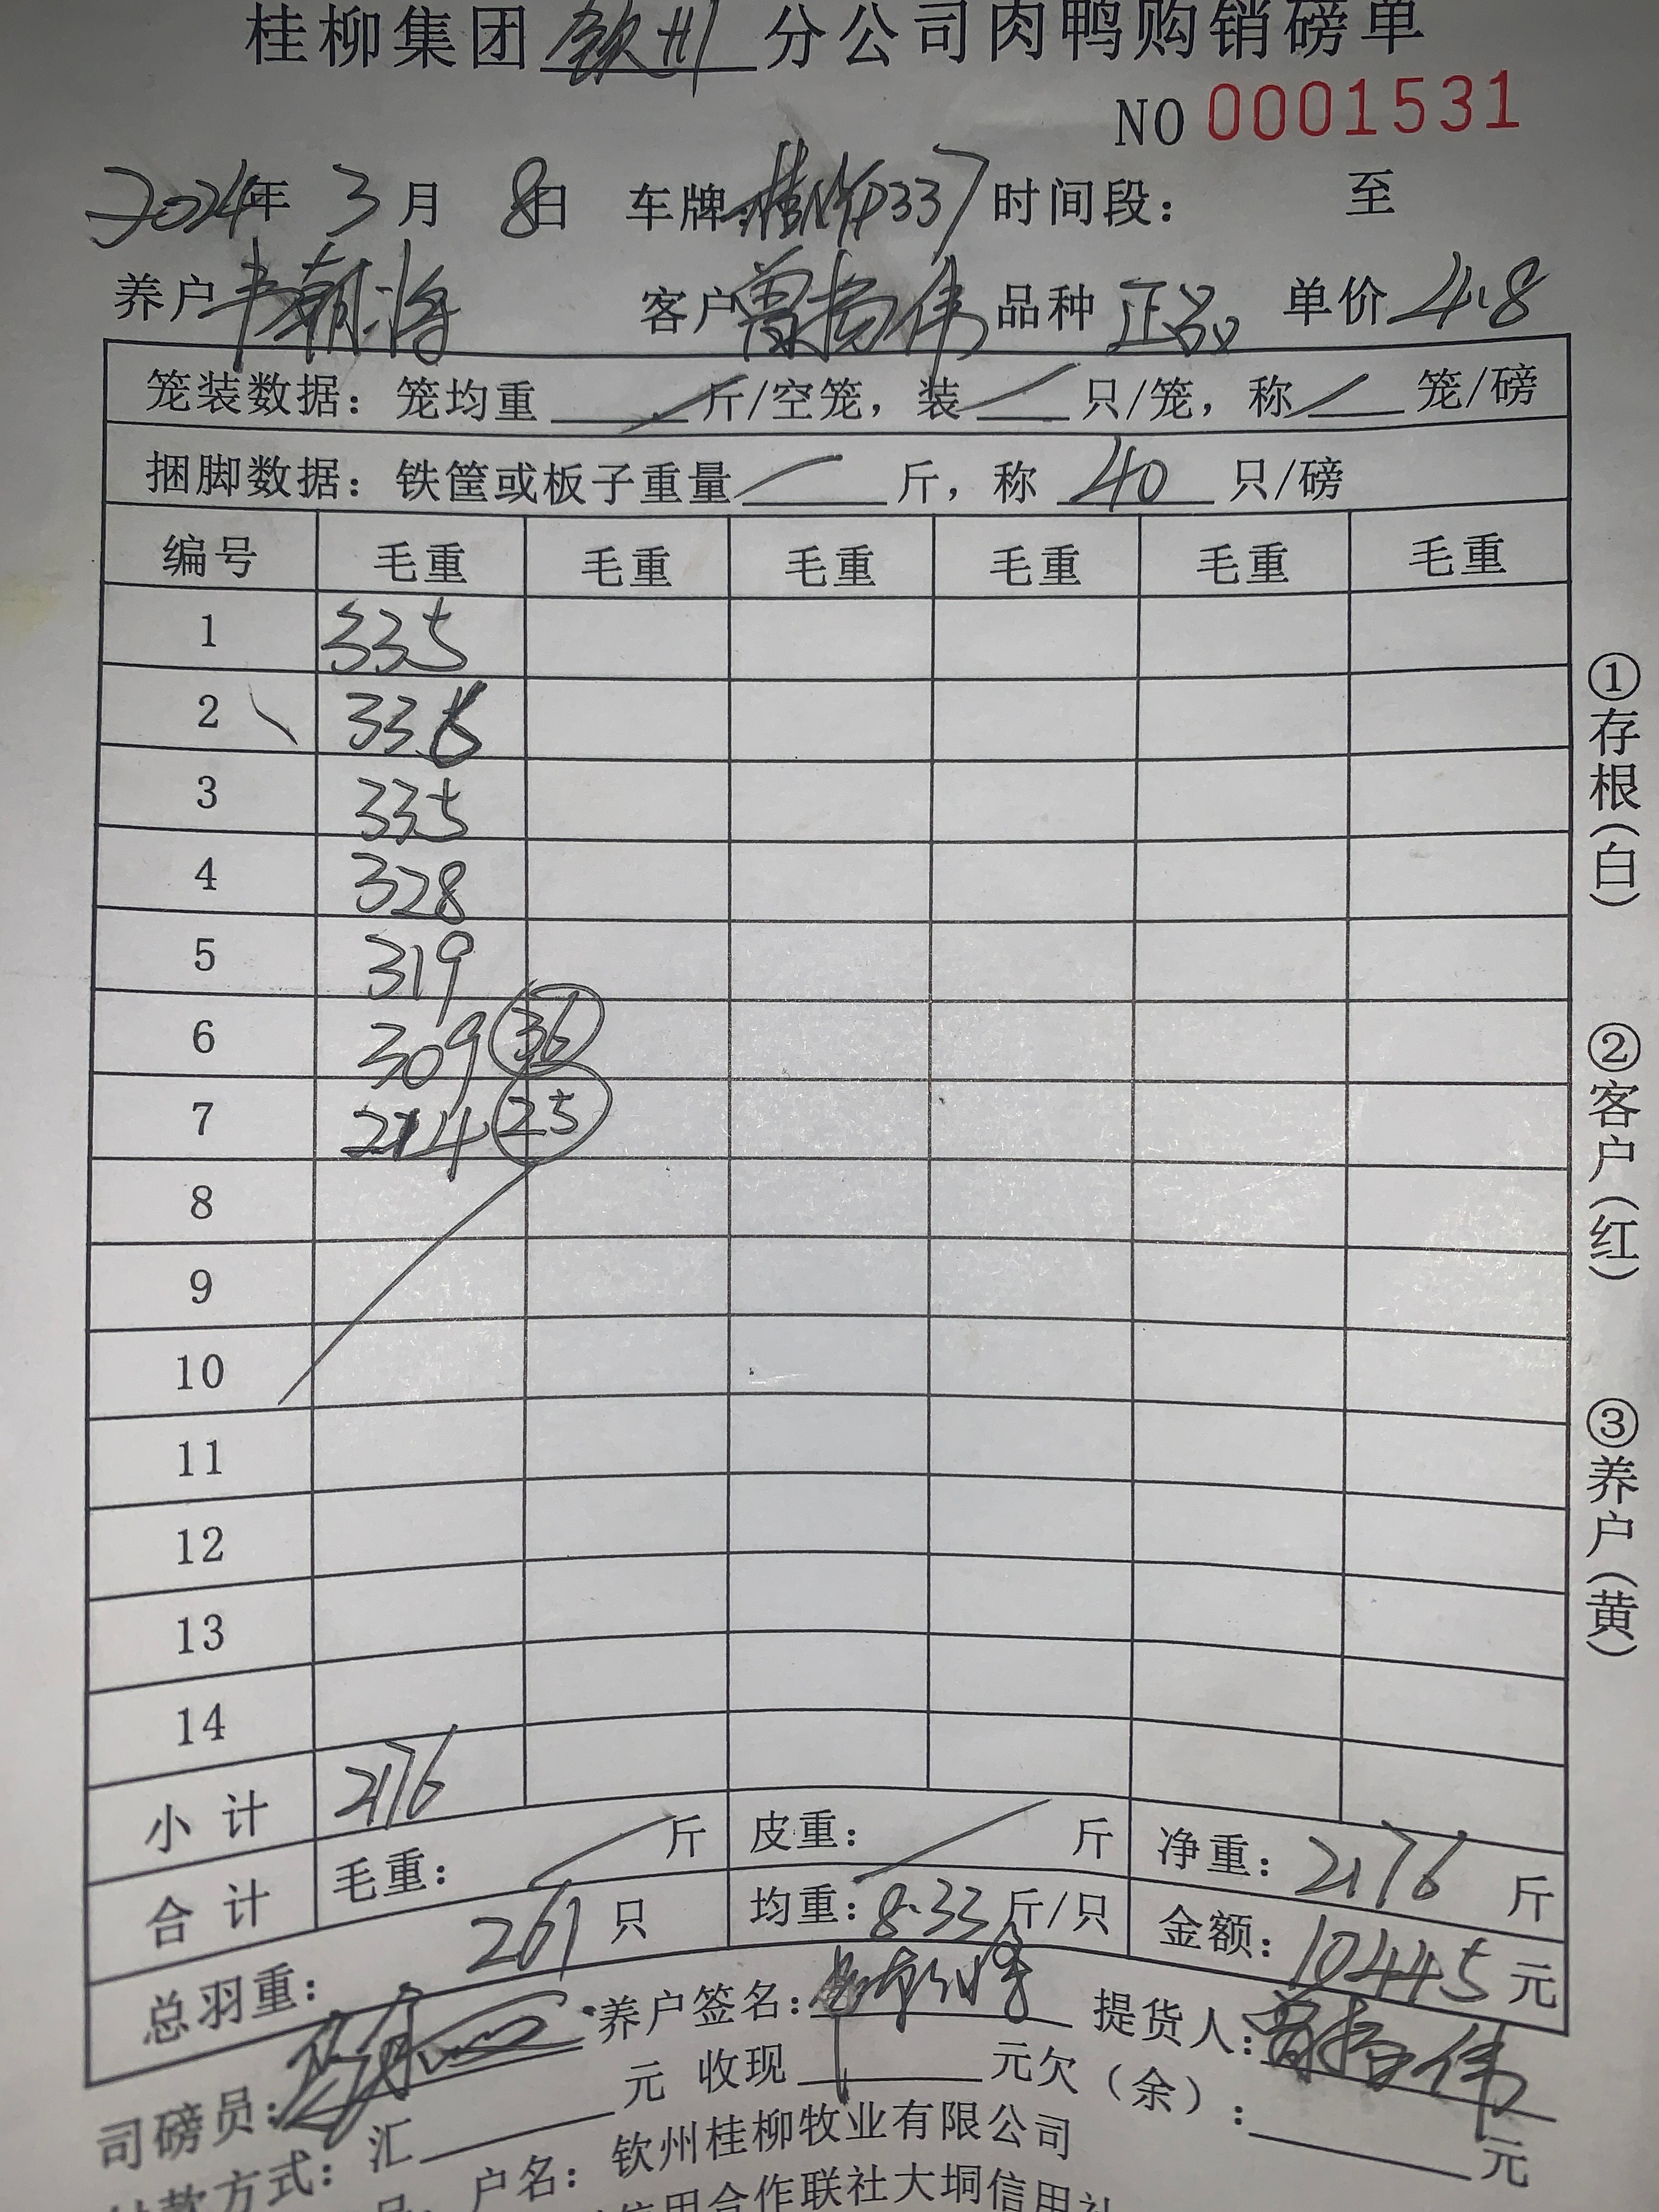 桂柳集团 钦州 分公司肉鸭购销磅单
NO 0001531
2024年 3月 8日 车牌: 桂 337 时间段: 至
养户 韦朝海 客户 曾 伟 品种 正品 单价 4.8
笼装数据: 笼均重 / 斤/空笼, 装 / 只/笼, 称 / 笼/磅
捆脚数据: 铁筐或板子重量 / 斤, 称 40 只/磅
编号 毛重 毛重 毛重 毛重 毛重 毛重
1 335
2 336
3 335
4 328
5 319
6 309 36
7 214 25
8
9
10
11
12
13
14
小计 2176
合计 毛重: / 斤 皮重: / 斤 净重: 2176 斤
总羽重: 261 只 均重: 8.33 斤/只 金额: 10445 元
司磅员: 养户签名: 提货人: 曾 伟
付款方式: 汇 元 收现 元 欠(余): 元
户名: 钦州桂柳牧业有限公司
信用合作联社大垌信用社
①存根(白)
②客户(红)
③养户(黄)